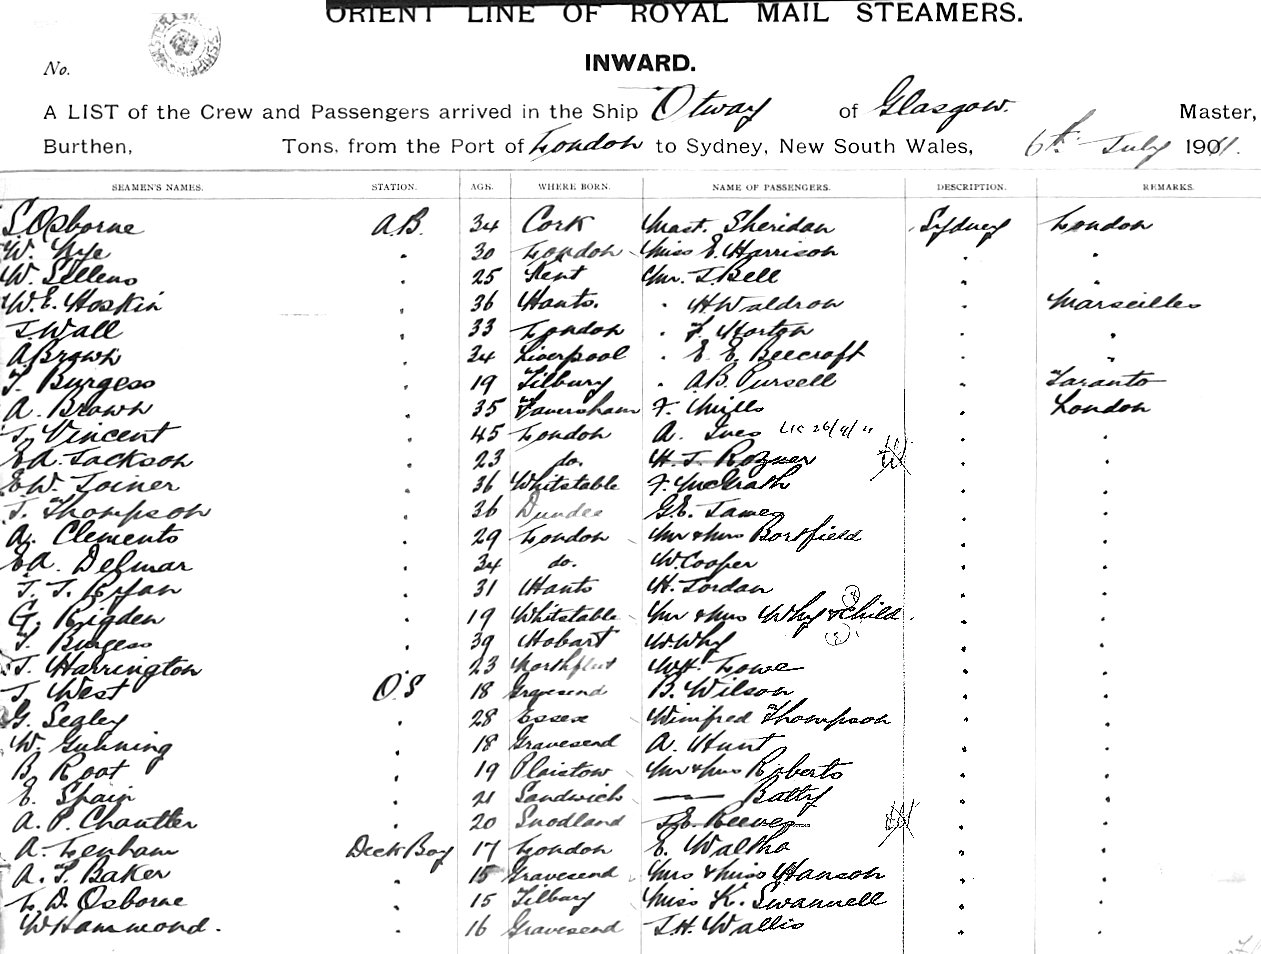 ORIENT LINE OF ROYAL MAIL STEAMERS.
INWARD.
No.
A LIST of the Crew and Passengers arrived in the Ship Otway of Glasgow. Master,
Burthen, Tons, from the Port of London to Sydney, New South Wales, 6th July 1911.
SEAMEN'S NAMES. STATION. AGE. WHERE BORN. NAME OF PASSENGERS. DESCRIPTION. REMARKS.
S. Osborne A.B. 34 Cork Mast. Sheridan Sydney London
W. Nye " 30 London Miss E. Harrison " "
W. Sellens " 25 Kent Mr. J. Bell " "
W.E. Hoskin " 36 Hants. " H Waldron " Marseilles
J. Wall " 33 London " F Horton " "
A Brown " 34 Liverpool " E. E. Beecroft " "
T. Burgess " 19 Tilbury " A.B. Pursell " Taranto
A. Brown " 35 Faversham F. Mills " London
J. Vincent " 45 London A. Ives " "
E.A. Jackson " 23 do. H. J. Rozner " "
E.W. Joiner " 36 Whitstable F. McGrath " "
J. Thompson " 36 Dundee G.E. James " "
A. Clements " 29 London Mr & Mrs Bortfield " "
E.A. Delmar " 34 do. W. Cooper " "
J. J. Ryan " 31 Hants H. Jordan " "
G. Rigden " 19 Whitstable Mr & Mrs Why & Child " "
T. Burgess " 39 Hobart W. Why " "
J. Harrington " 23 Northfleet W.H. Lowe " "
J. West O.S 18 Gravesend B. Wilson " "
G. Segley " 28 Essex Winifred Thompson " "
W. Gunning " 18 Gravesend A. Hunt " "
B. Root " 19 Plaistow Mr & Mrs Roberts " "
E. Spain " 21 Sandwich — Batty " "
A. P. Chantler " 20 Snodland J.E. Reeves " "
A. Lenham Deck Boy 17 London E. Waltho " "
A. T. Baker " 15 Gravesend Mrs & Miss Hanson " "
L. D. Osborne " 15 Tilbury Miss K. Swannell " "
W Hammond. " 16 Gravesend J.H. Wallis " "